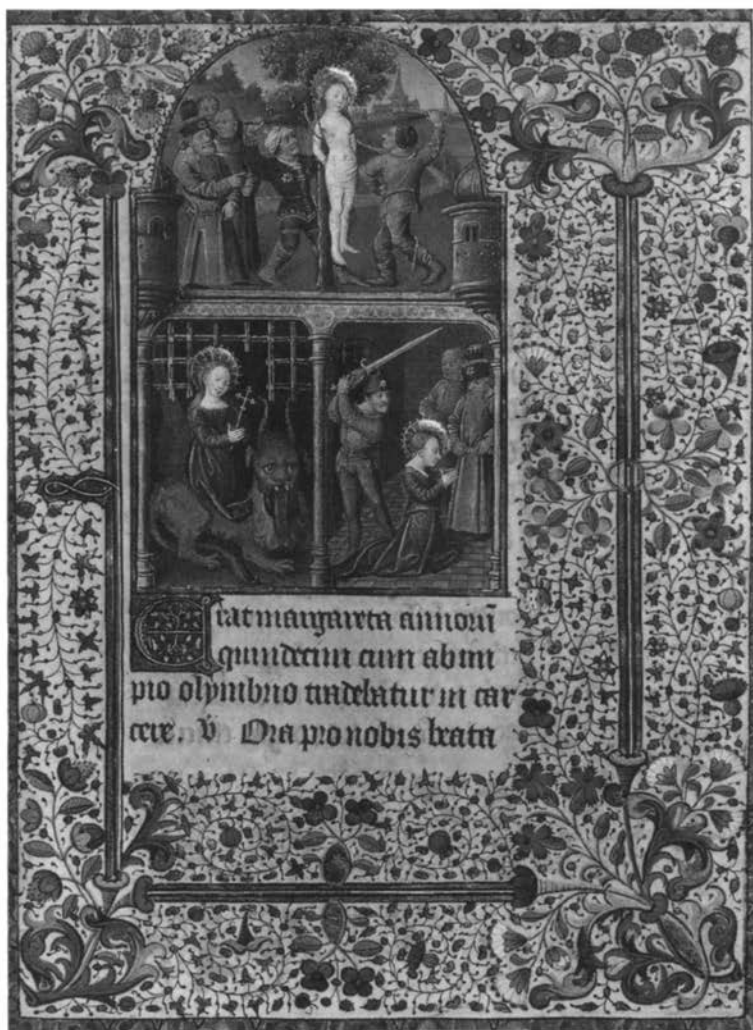 Erat margareta annorū
quindecim cum ab im
pio olymbrio tradebatur in car
cere. V Ora pro nobis beata